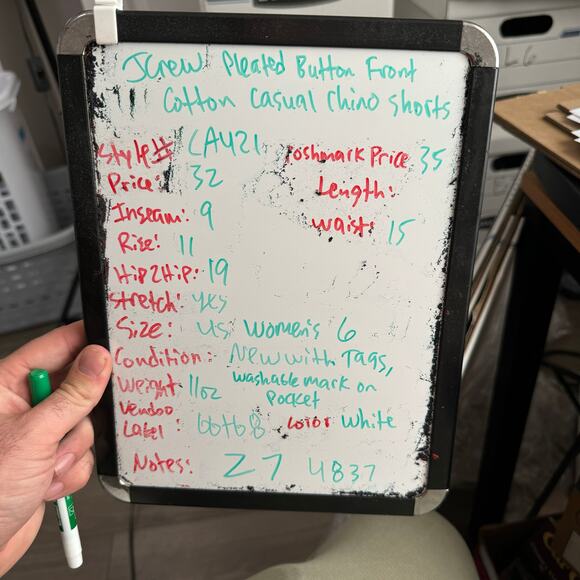 JCrew Pleated Button Front
Cotton Casual Chino Shorts
Style# CA421 Poshmark Price 35
Price: 32 Length:
Inseam: 9 waist: 15
Rise: 11
Hip2Hip: 19
Stretch: yes
Size: us women's 6
Condition: New with Tags,
washable mark on
Pocket
Weight 11oz
Vendoo
Label: color White
Notes: Z7 4837